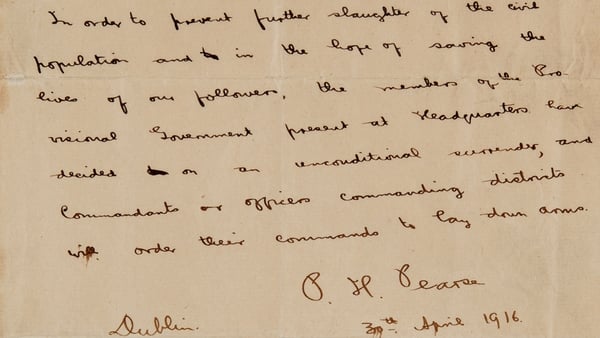 In order to prevent further slaughter of the civil
population and in the hope of saving the
lives of our followers, the members of the Pro-
visional Government present at Headquarters have
decided on an unconditional surrender, and
Commandants or officers commanding districts
will order their commands to lay down arms.
P. H. Pearse
Dublin.
30th April 1916.